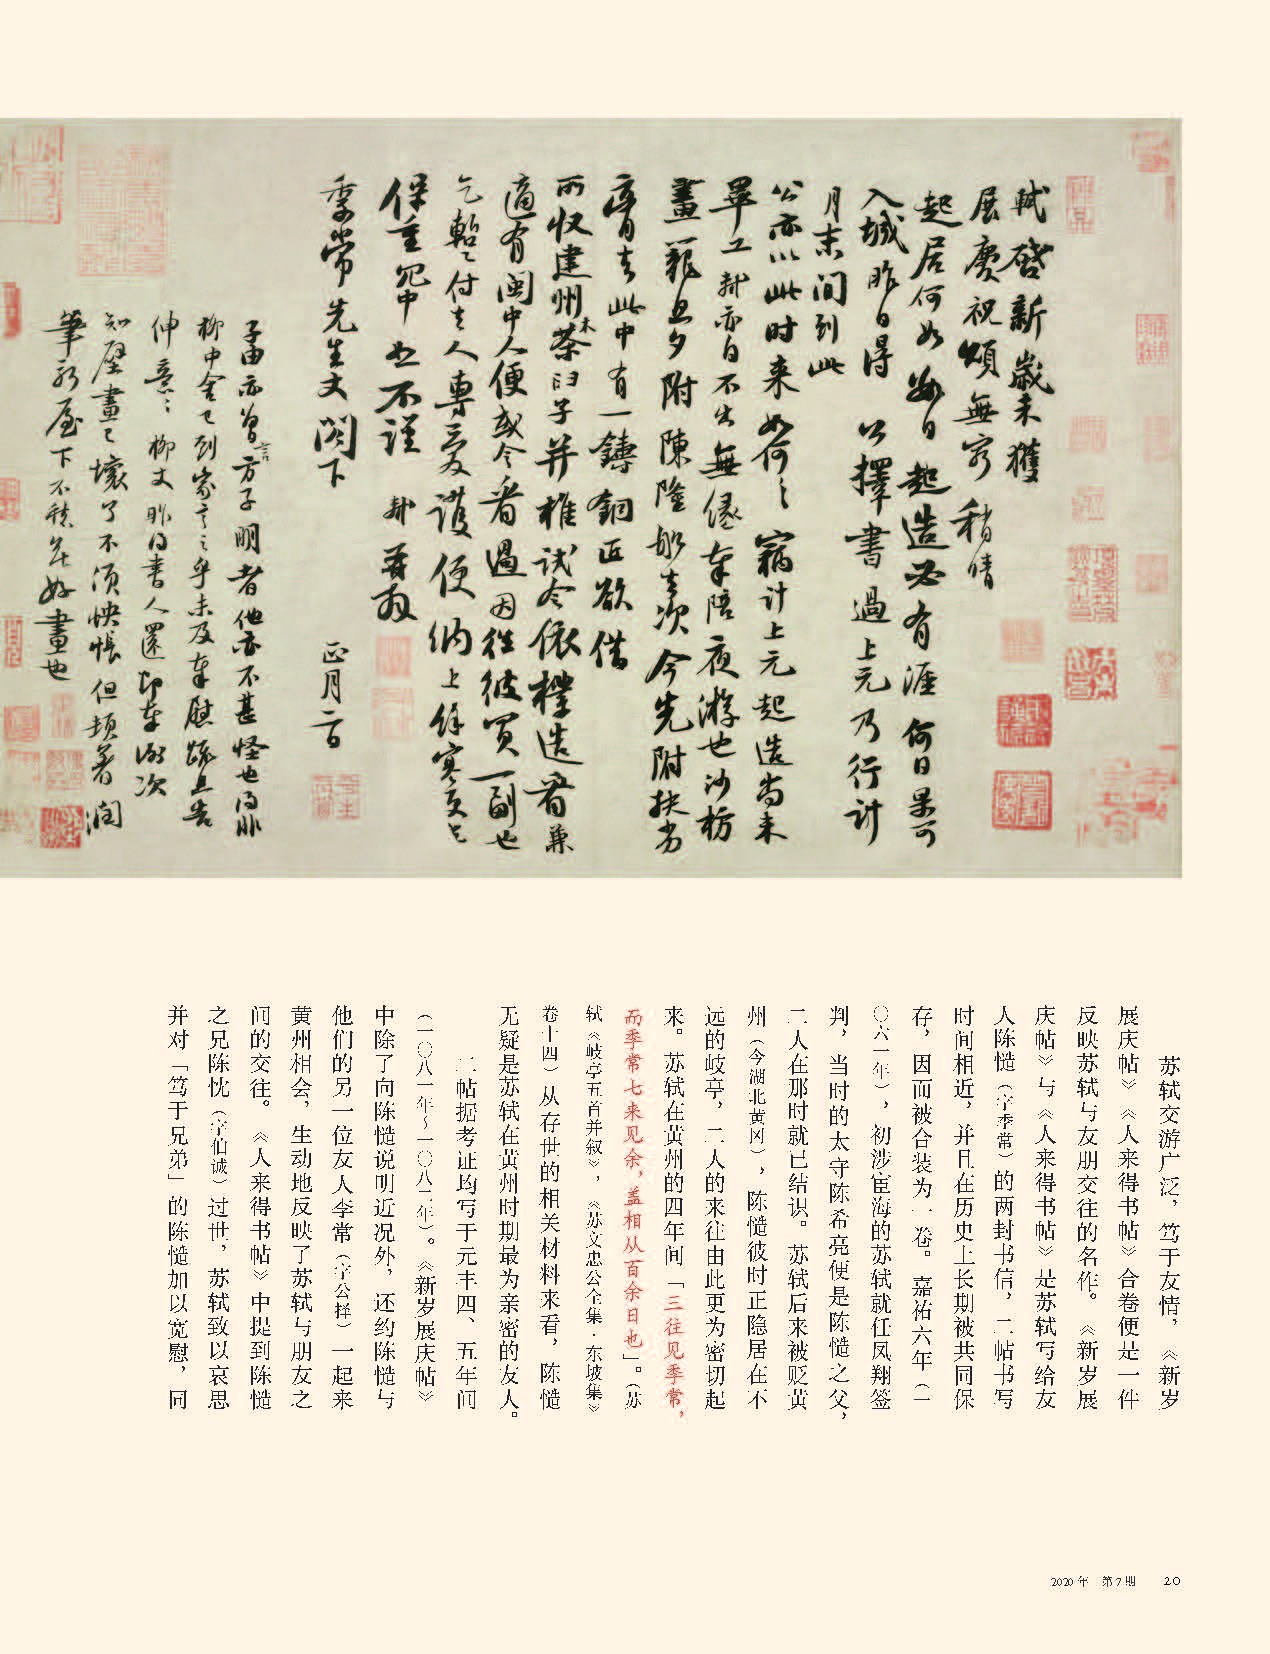 軾啓新歲未獲
展慶祝頌無窮稍晴
起居何如數日起造必有涯何日果可
入城昨日得公擇書過上元乃行計
月末間到此
公亦以此时来如何〻竊计上元起造尚未
畢工軾亦自不出無緣奉陪夜游也沙枋
畫籠旦夕附陳隆船去次今先附扶劣
膏去此中有一鑄銅匠欲借
所收建州木茶臼子并椎試令依樣造看兼
適有閩中人便或令看過因往彼買一副也
乞蹔付去人專愛護便納上餘寒更乞
保重冗中恕不謹軾再拜
季常先生丈閤下 正月二日
子由亦曾言方子明者他亦不甚怪也得非
柳中舍已到家言之乎未及奉慰疏且告
伸意〻柳丈昨得書人還即奉謝次
知壁畫已壞了不須怏悵但頓著潤
筆新屋下不愁無好畫也
苏轼交游广泛，笃于友情，《新岁
展庆帖》《人来得书帖》合卷便是一件
反映苏轼与友朋交往的名作。《新岁展
庆帖》与《人来得书帖》是苏轼写给友
人陈慥（字季常）的两封书信，二帖书写
时间相近，并且在历史上长期被共同保
存，因而被合装为一卷。嘉祐六年（一
〇六一年），初涉宦海的苏轼就任凤翔签
判，当时的太守陈希亮便是陈慥之父，
二人在那时就已结识。苏轼后来被贬黄
州（今湖北黄冈），陈慥彼时正隐居在不
远的岐亭，二人的来往由此更为密切起
来。苏轼在黄州的四年间「三往见季常，
而季常七来见余，盖相从百余日也」。（苏
轼《岐亭五首并叙》，《苏文忠公全集·东坡集》
卷十四）从存世的相关材料来看，陈慥
无疑是苏轼在黄州时期最为亲密的友人。
二帖据考证均写于元丰四、五年间
（一〇八一年～一〇八二年）。《新岁展庆帖》
中除了向陈慥说明近况外，还约陈慥与
他们的另一位友人李常（字公择）一起来
黄州相会，生动地反映了苏轼与朋友之
间的交往。《人来得书帖》中提到陈慥
之兄陈忱（字伯诚）过世，苏轼致以哀思
并对「笃于兄弟」的陈慥加以宽慰，同
2020年 第7期 20